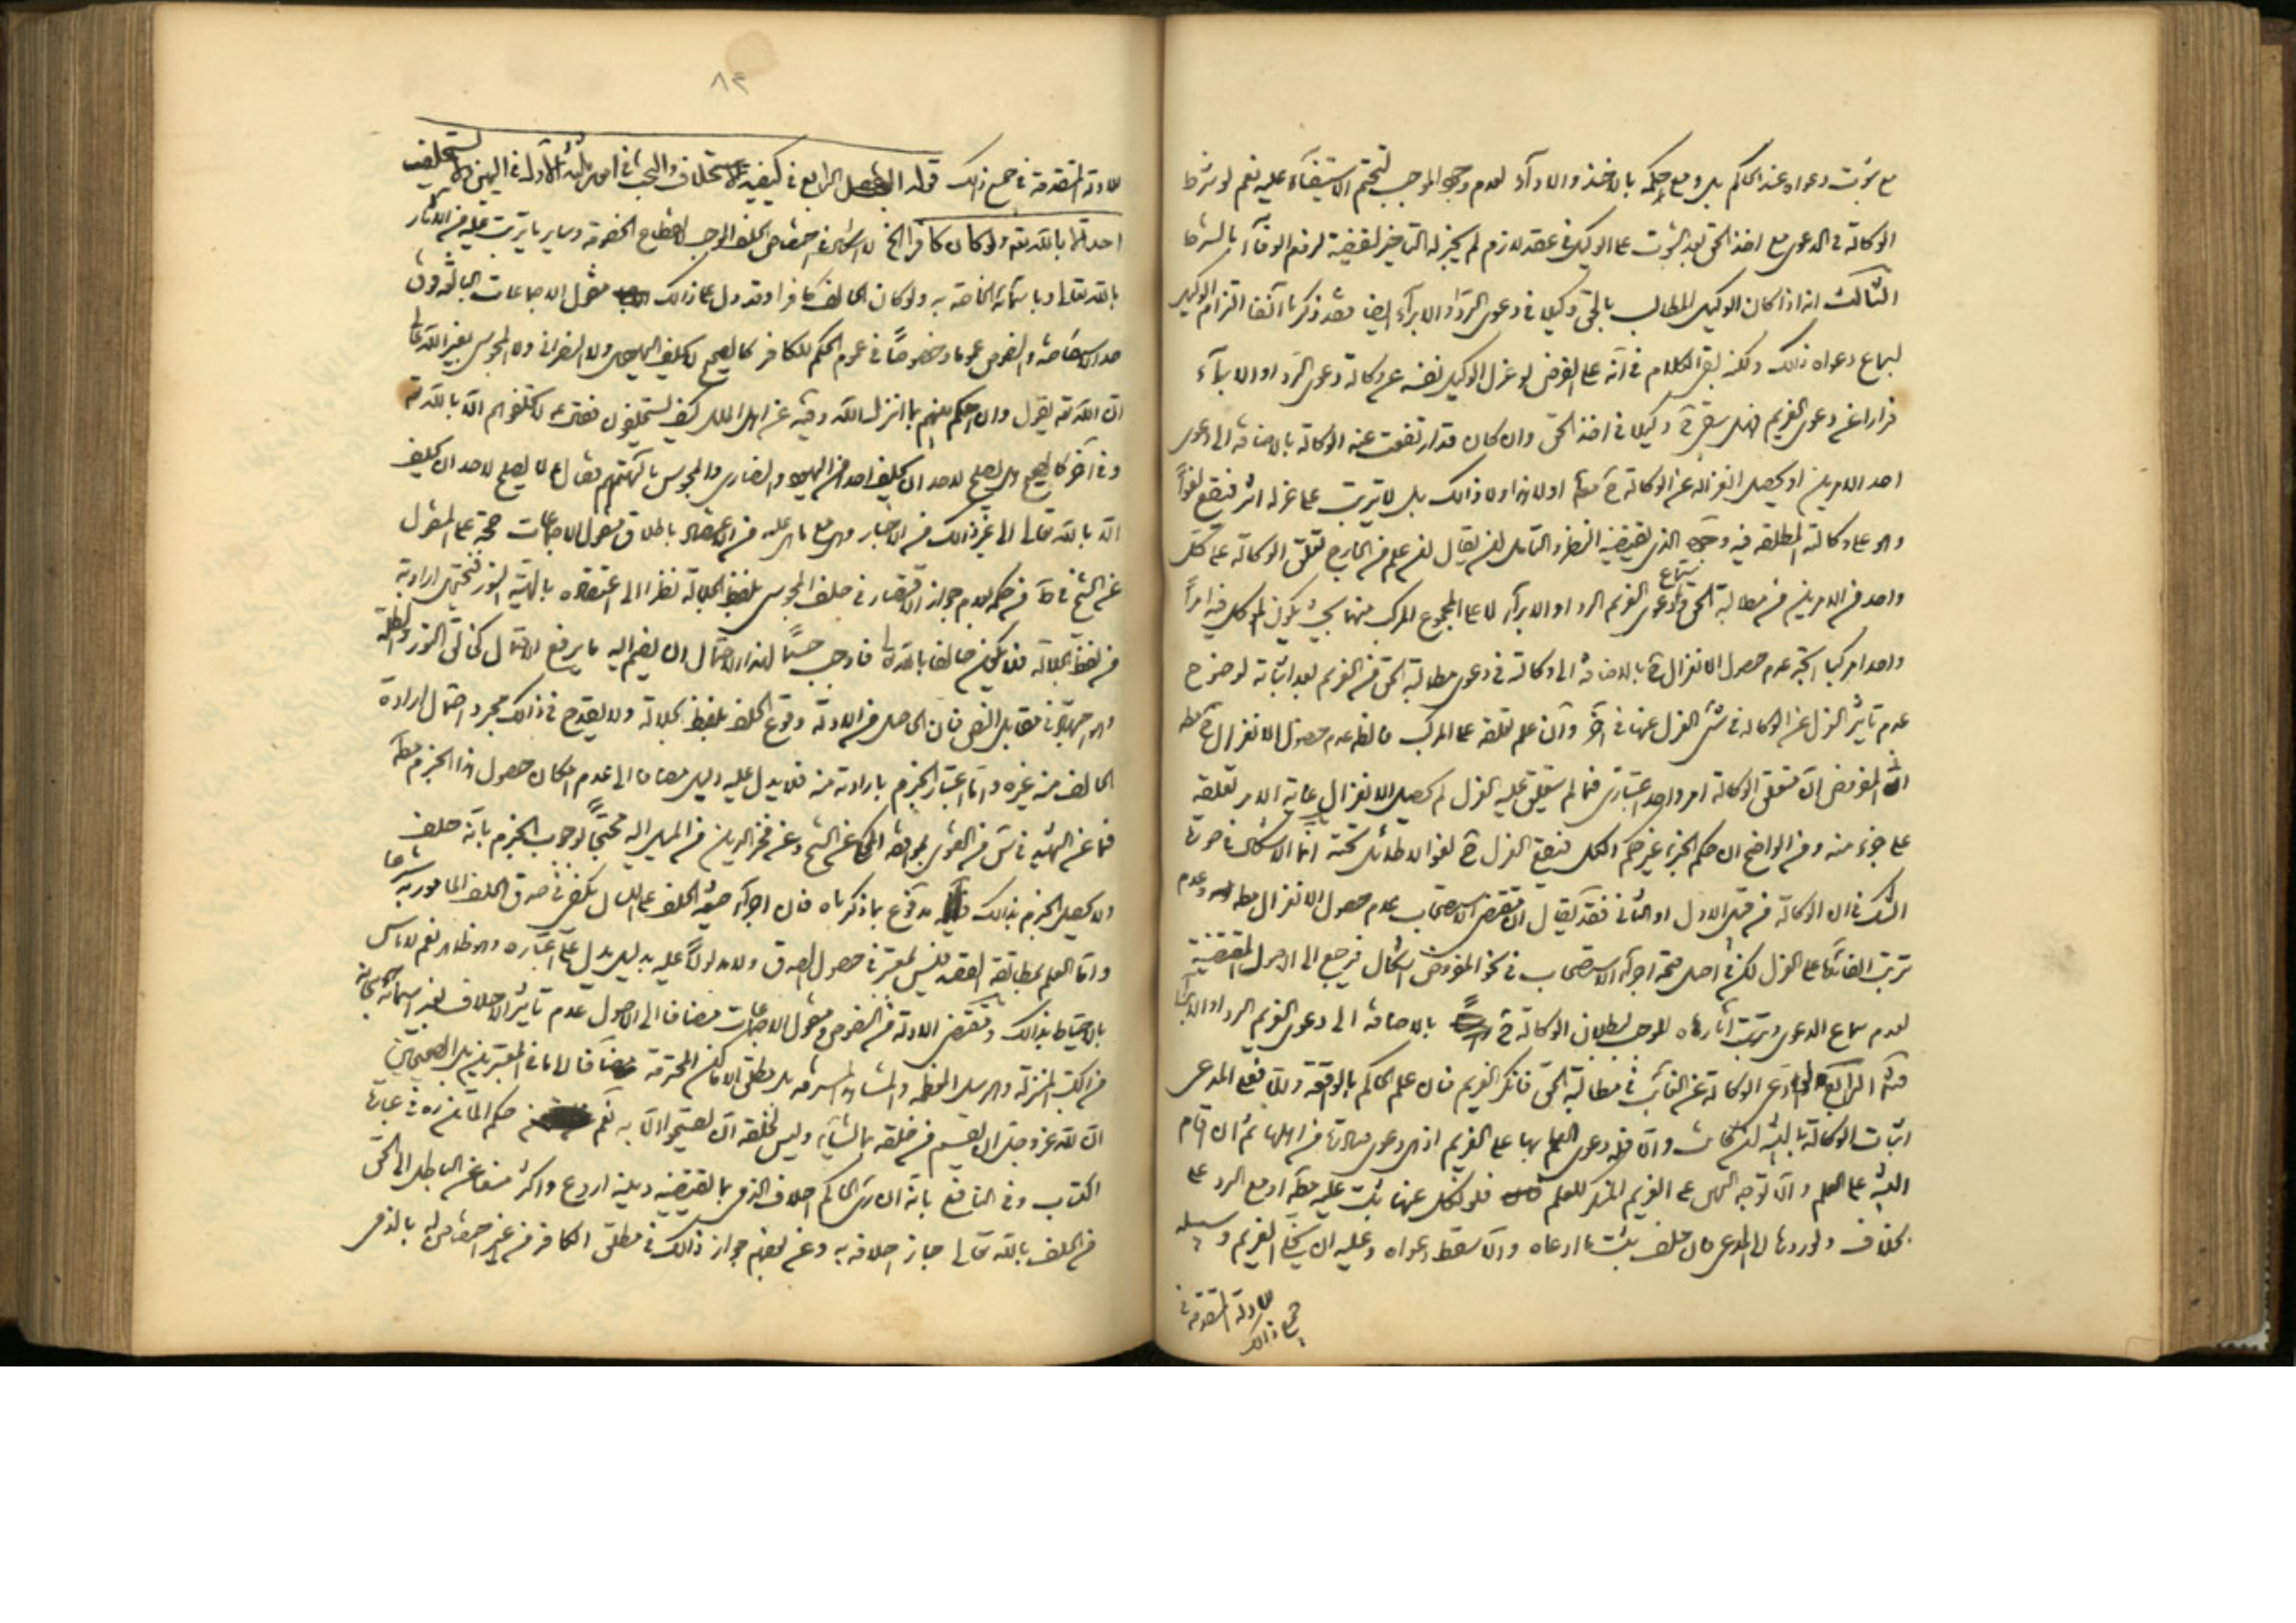 مع ثبوت دعواه عند الحاكم بل ومع حكمه بالاخذ والاداء لعدم وجود الموجب لتحتم الاستيفاء عليه نعم لو شرط
الوكالة في الدعوى مع اخذ الحق بعد الثبوت على الوكيل في عقد لازم لم يجز له التاخير لقضية لزوم الوفاء بالشرط
الثالث انه اذا كان الوكيل المطالب بالحق وكيلا في دعوى الرد او الابراء ايضا فقد ذكرنا آنفا التزام الوكيل
لسماع دعواه ذلك ولكنه بقي الكلام في انه على الفرض لو عزل الوكيل نفسه عن وكالة دعوى الرد او الابراء
فرارا عن دعوى الغريم فهل يبقى وكيلا في اخذ الحق وان كان قد ارتفعت عنه الوكالة بالاضافة الى دعوى
احد الامرين او يحصل انعزاله عن الوكالة مطلقا اولا هذا ولا ذالك بل لا يترتب على عزله اثر فيقع لغواً
وهو على وكالته المطلقة فيه وجوه الذي يقتضيه النظر والتامل ان يقال ان علم من الخارج تعلق الوكالة على كل
واحد من الامرين من مطالبة الحق وسماع دعوى الغريم الرد او الابراء لا على المجموع المركب منهما بحيث يكون الموكل فيه امراً
واحدا مركبا اتجه عدم حصول الانعزال بالاضافة الى وكالته في دعوى مطالبة الحق من الغريم بعد اثباته لوضوح
عدم تاثير العزل عن الوكالة في شئ العزل عنها في آخر وان علم تعلقه على المركب فالظاهر عدم حصول الانعزال مطلقا
اذ المفروض ان متعلق الوكالة امر واحد اعتباري فما لم يتعلق عليه العزل لم يحصل الانعزال غاية الامر تعلقه
على جزء منه ومن الواضح ان حكم الجزء غير حكم الكل فيقع العزل لغوا لا طائل تحته انما الاشكال في صورة
الشك في ان الوكالة من قبيل الاول او الثاني فقد يقال ان مقتضى الاستصحاب عدم حصول الانعزال مطلقا وعدم
ترتب الفائدة على العزل لكن في اصل صحة اجراء الاستصحاب في نحو المفروض اشكال فيرجع الى الاصول المقتضية
لعدم سماع الدعوى وترتب آثارها الموجب لبطلان الوكالة بالاضافة الى دعوى الغريم الرد او الابراء
الرابع لو ادعى الوكالة عن الغائب في مطالبة الحق فانكر الغريم فان علم الحاكم بالواقعة والا فعلى المدعي
اثبات الوكالة بالبينة ان كانت والا فله دعوى العلم بها على الغريم اذ هي دعوى صادرة من اهلها ثم ان اقام
البينة على العلم والا توجه اليمين على الغريم المنكر للعلم فلو نكل عنها يثبت عليه مطلقا او مع الرد على
بخلاف ولو ردها الى المدعي فان حلف يثبت ما ادعاه والا سقط دعواه وعليه ان يخلي الغريم وسبيله
للادلة المتقدمة في
جميع ذالك
٨٩
للادلة المتقدمة في جميع ذلك قوله الفصل الرابع في كيفية الاستحلاف والبحث في امور ثلثة الاول في اليمين ولا يستحلف
احد الا بالله تعالى ولو كان كافرا الخ لا اشكال في اختصاص الحلف الموجب لانقطاع الخصومة وساير ما يترتب عليه من الاثار
بالله تعالى او باسمائه الخاصة به ولو كان الحالف كافرا وقد دل على ذالك منقول الاجماعات البالغة
حد الاستفاضة والنصوص عموما وخصوصاً في عموم الحكم للكافر كالصحيح لا يحلف اليهودي ولا النصراني ولا المجوسي بغير الله تعالى
ان الله تعالى يقول وان احكم بينهم بما انزل الله وفيه عن اهل الملل كيف يستحلفون فقال لا تحلفوهم الا بالله تعالى
وفي آخر كالصحيح هل يصلح لاحد ان يحلف احدا من اليهود والنصارى والمجوس بالهتهم فقال لا يصلح لاحد ان يحلف
الا بالله تعالى الى غير ذالك من الاخبار وهي مع ما هي عليه من الاعتضاد باطلاق منقول الاجماعات حجة على المنقول
عن الشيخ في ط من حكمه بعدم جواز الاقتصار في حلف المجوسي بلفظ الجلالة نظرا الى اعتقاده بالهية النور فيحتمل ارادته
من لفظ الجلالة فلا يكون حالفا بالله تعالى فاوجب حسماً لهذا الاحتمال ان يضم اليه ما يرفع الاحتمال كخالق النور والظلمة
وهو اجتهاد في مقابل النص فان الحاصل من الادلة وقوع الحلف بلفظ الجلالة ولا يقدح في ذالك مجرد احتمال ارادة
الحالف منه غيره واما اعتبار الجزم بارادته منه فلا يدل عليه دليل مضافا الى عدم امكان حصول هذا الجزم مطلقا
فما عن الشهيد في س من القول بموافقة المحكي عن الشيخ وعن فخر الدين من الميل اليه محتجاً بوجوب الجزم بانه حلف
ولا يحصل الجزم بذالك مدفوع بما ذكرناه فان اجراء صيغة الحلف على اللسان يكفي في صدق الحلف المامور به شرعا
واما العلم بمطابقة القصد فليس بمعتبر في حصول الصدق ولا مدلولاً عليه بدليل يدل على اعتباره وهو ظاهر نعم لا باس
بالاحتياط بذالك ومقتضى الادلة من النصوص ومنقول الاجماعات مضافا الى الاصول عدم تاثير الاحلاف بغير اسمائه سبحانه
من الكتب المنزلة والرسل المعظمة والمشاهد المشرفة بل مطلق الاماكن المحترمة مضافا لما في المعتبرين بل الصحيحين
ان لله عز وجل ان يقسم من خلقه بما شاء وليس لخلقه ان يقسموا الا به نعم حكم الماتن ره في عبارة
الكتاب وفي النافع بانه ان راى الحاكم احلاف الذمي بما يقتضيه دينه اردع واكثر منعا عن الباطل الى الحق
من الحلف بالله تعالى جاز احلافه به وعن بعضهم جواز ذالك في مطلق الكافر من غير اختصاص له بالذمي